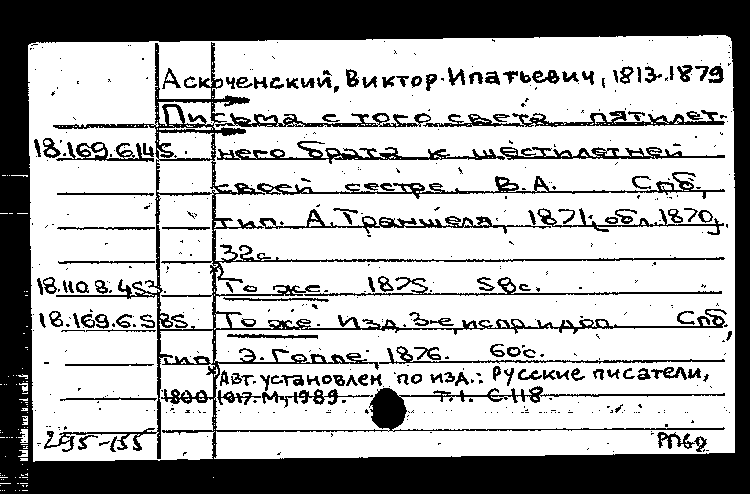 Аскоченский, Виктор Ипатьевич, 1813-1879
Письма с того света пятилет-
18.169.6.145. него брата к шестилетней
своей сестре. В.А. Спб,
тип. А. Траншеля, 1871; [обл.1870].
32с.
18.110.8.453. х) То же. 1875. 58с.
18.169.6.585. То же. Изд. 3-е, испр. и доп. Спб,
тип. Э. Гоппе, 1876. 60с.
х) Авт. установлен по изд.: Русские писатели,
1800-1917. М., 1989. Т.1. С.118.
295-155 РПб2